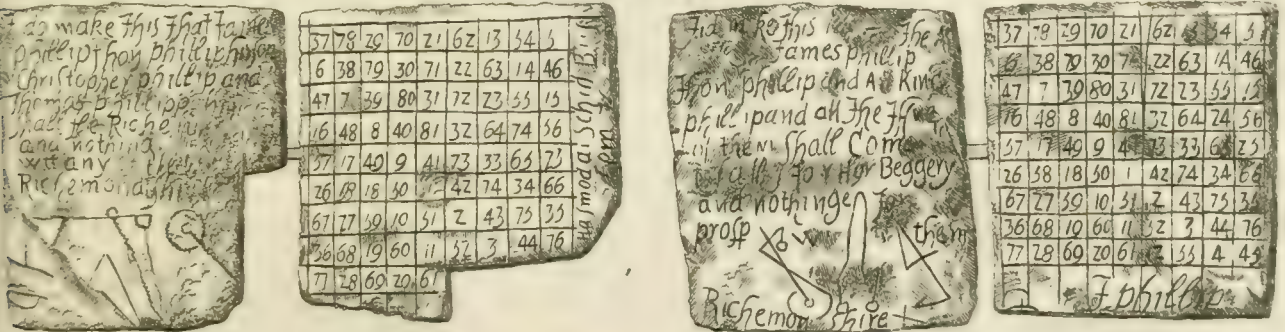 I do make this that James
phillip Jhon phillip hison
Christopher phillip and
Thomas phillipp
shall flee Riche
and nothing
with any
Richemondshi
37 78 29 70 21 62 13 54 5
6 38 79 30 71 22 63 14 46
47 7 39 80 31 72 23 55 15
16 48 8 40 81 32 64 74 56
57 17 49 9 41 73 33 65 25
26 58 18 50 42 74 34 66
67 27 59 10 51 2 43 75 35
36 68 19 60 11 52 3 44 76
77 28 69 20 61
Hasmodai
I do make this
James phillip
Jhon phillip and All Kine
phillip and all the
of them shall Come
to Beggery
and nothinge
prosp them
Richemon Shire
37 78 29 70 21 62 13 54 5
6 38 79 30 7 22 63 14 46
47 7 39 80 31 72 23 55 15
16 48 8 40 81 32 64 24 56
57 17 49 9 4 73 33 65 25
26 58 18 50 1 42 74 34 66
67 27 59 10 51 2 43 75 35
36 68 19 60 11 52 3 44 76
77 28 69 20 61 12 53 4 45
J phillip